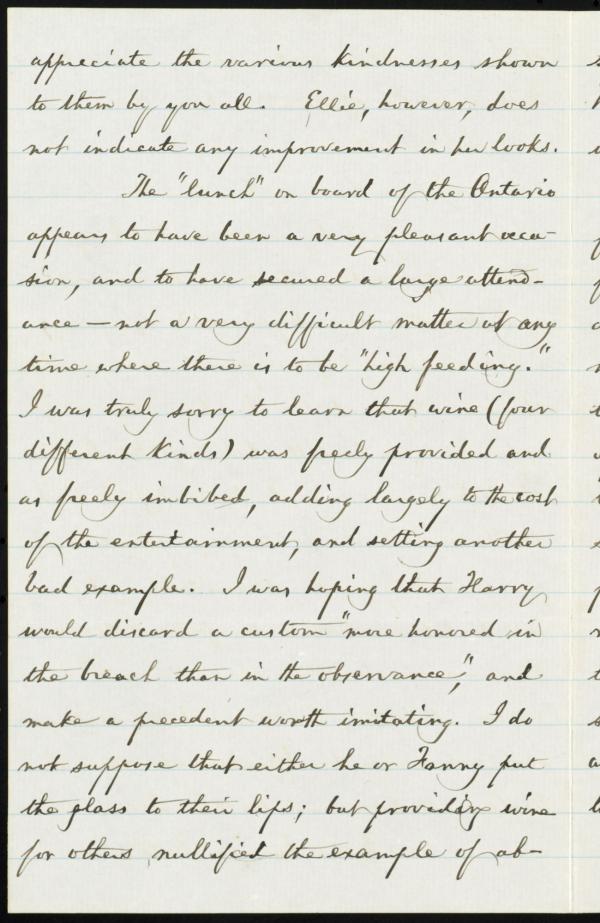 appreciate the various kindnesses shown
to them by you all. Ellie, however, does
not indicate any improvement in her looks.
The "lunch" on board of the Ontario
appears to have been a very pleasant occa-
sion, and to have secured a large attend-
ance — not a very difficult matter at any
time where there is to be "high feeding."
I was truly sorry to learn that wine (four
different kinds) was freely provided and
as freely imbibed, adding largely to the cost
of the entertainment, and setting another
bad example. I was hoping that Harry
would discard a custom "more honored in
the breach than in the observance," and
make a precedent worth imitating. I do
not suppose that either he or Fanny put
the glass to their lips; but providing wine
for others nullified the example of ab-